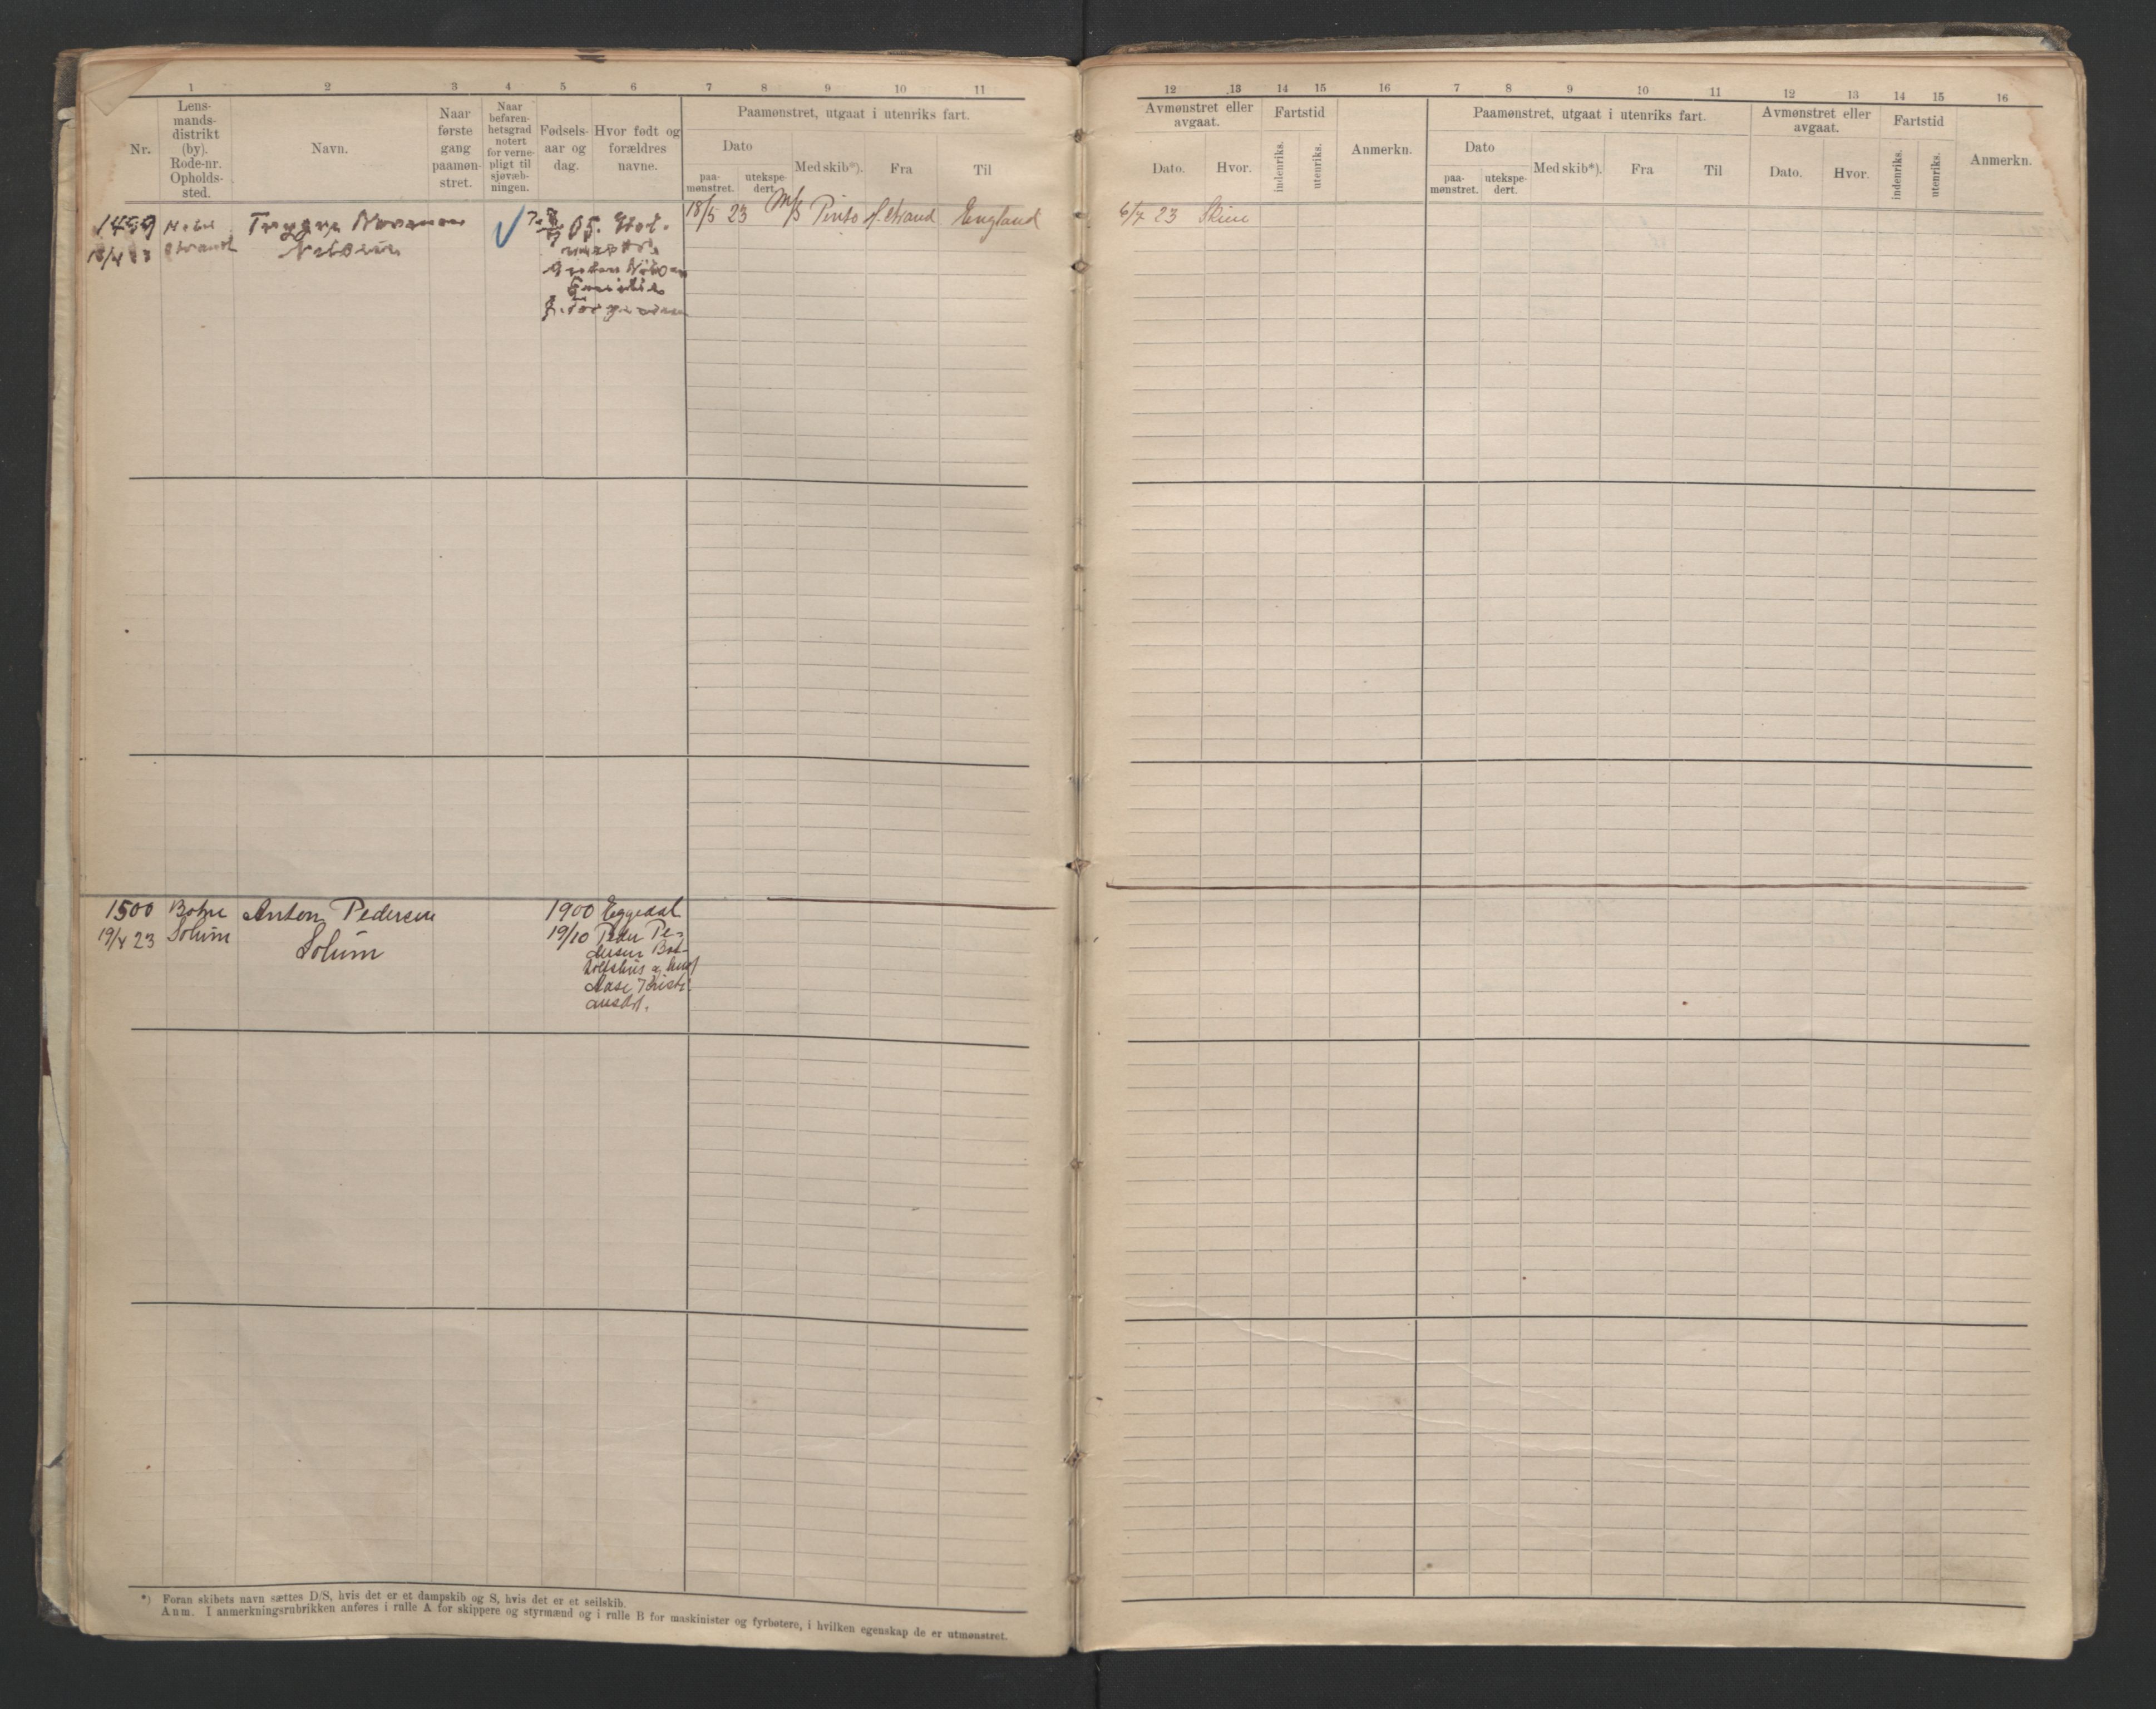 1 2 3 4 5 6 7 8 9 10 11
Nr.
Lens-
mands-
distrikt
(by).
Rode-nr.
Opholds-
sted.
Navn.
Naar
første
gang
paamøn-
stret.
Naar
befaren-
hetsgrad
notert
for verne-
pligt til
sjøvæb-
ningen.
Fødsels-
aar og
dag.
Hvor født og
forældres
navne.
Paamønstret, utgaat i utenriks fart.
Dato
paa-
mønstret.
utekspe-
dert.
Med skib*).
Fra
Til
1499
Trygve
05.
18/5 23 M/S Pinto H.strand England
1500 Botne Anton Pedersen 1900 Eggedal
19/4 23 Solum Solum 19/10 Peder Pe-
dersen Bot-
*) Foran skibets navn sættes D/S, hvis det er et dampskib og S, hvis det er et seilskib.
Anm. I anmerkningsrubrikken anføres i rulle A for skippere og styrmænd og i rulle B for maskinister og fyrbøtere, i hvilken egenskap de er utmønstret.
12 13 14 15 16 7 8 9 10 11 12 13 14 15 16
Avmønstret eller
avgaat.
Dato.
Hvor.
Fartstid
indenriks.
utenriks.
Anmerkn.
Paamønstret, utgaat i utenriks fart.
Dato
paa-
mønstret.
utekspe-
dert.
Med skib*).
Fra
Til
Avmønstret eller
avgaat.
Dato.
Hvor.
Fartstid
indenriks.
utenriks.
Anmerkn.
6/7 23 Skien